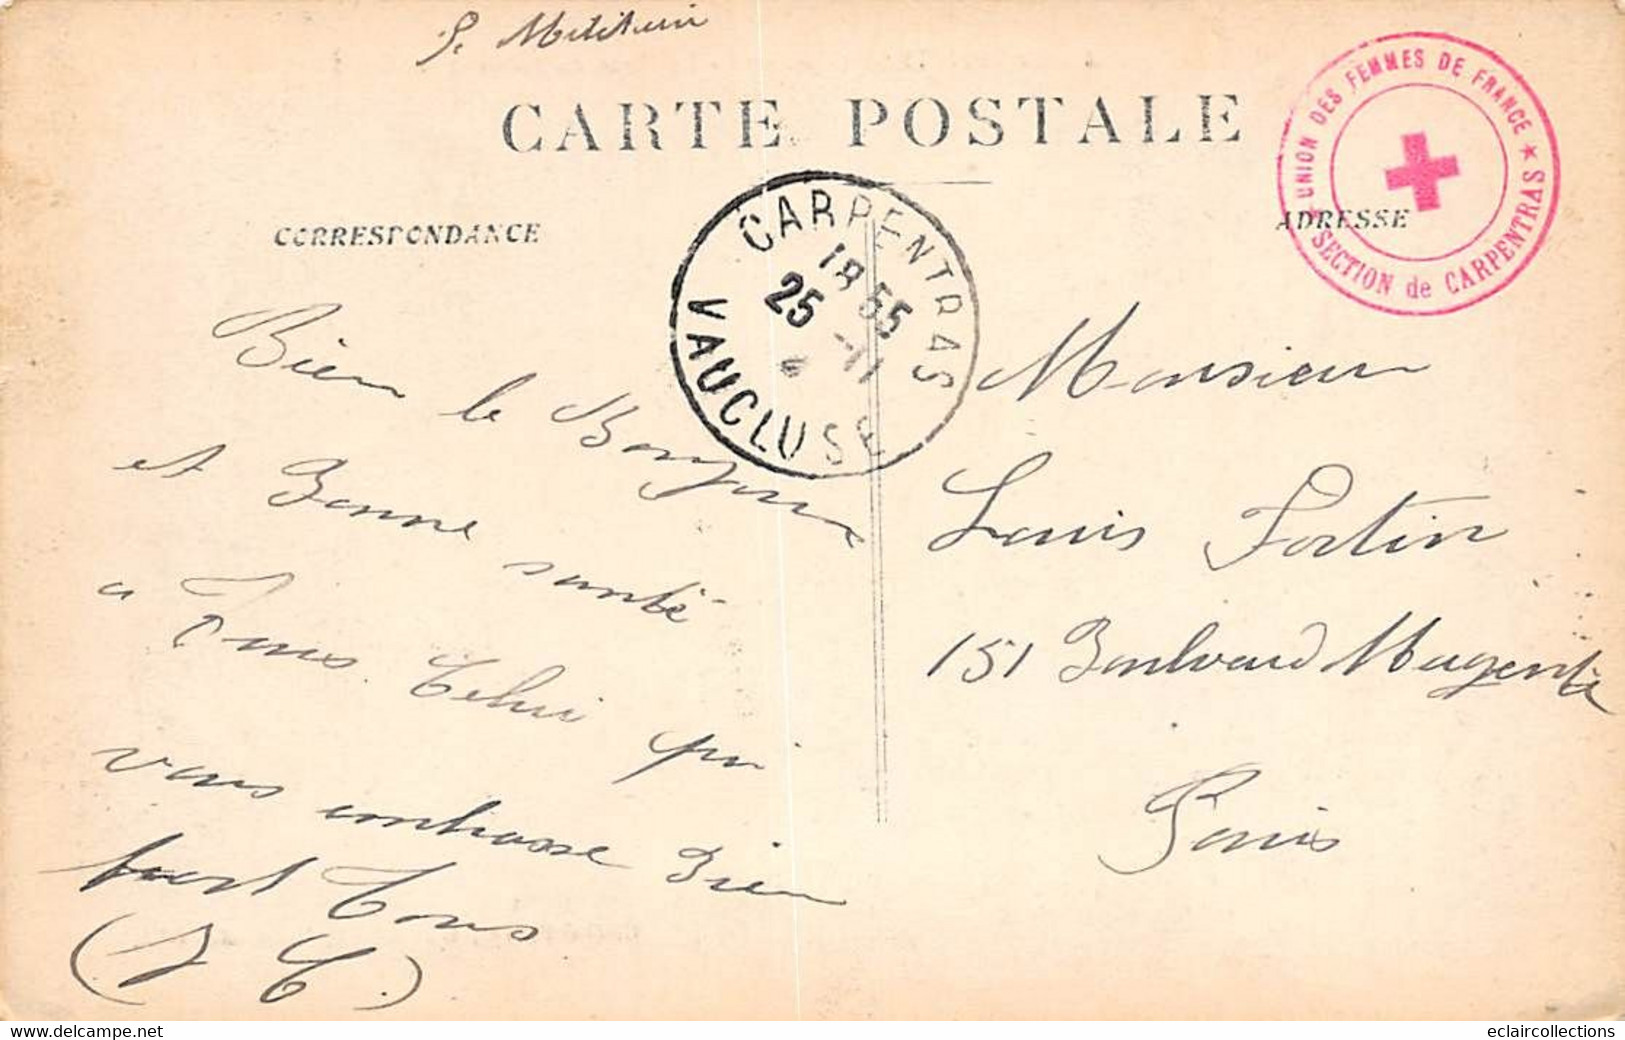 S. Militair
CARTE POSTALE
UNION DES FEMMES DE FRANCE
SECTION de CARPENTRAS
CORRESPONDANCE
ADRESSE
CARPENTRAS
18 55
25 -11
VAUCLUSE
Bien le Bonjour
et Bonne santé
a Tous Celui qui
vous embrasse Bien
fort Tous
Monsieur
Louis Fortin
151 Boulevard Magenta
Paris
www.delcampe.net
eclaircollections